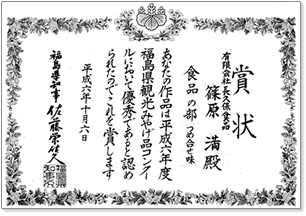 賞状
有限会社長久保食品
篠原満殿
食品の部つめ合せ味
あなたの作品は平成六年度
福島県観光みやげ品コンクー
ルにおいて優秀であると認め
られたのでこれを賞します
平成六年十月六日
福島県知事 佐藤栄佐久